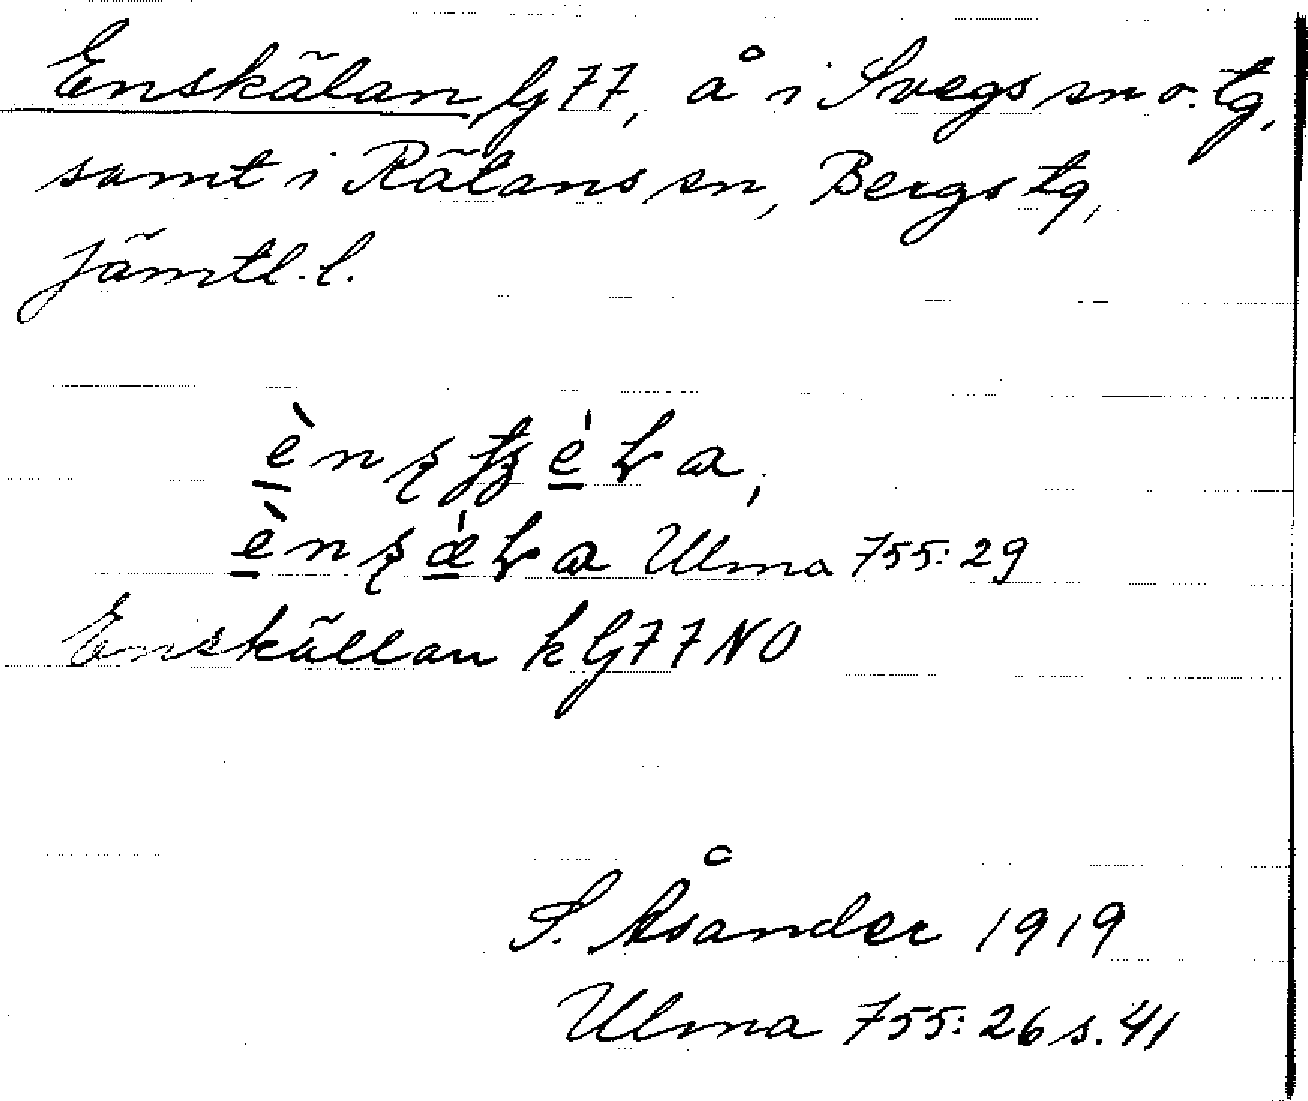 Enskälan, G 77, å i Svegs sn o. tg,
samt i Rätans sn, Bergs tg,
Jämtl. l.
Ulma 755:29
Enskällan k G 77 NO
S. Åsander 1919
Ulma 755:26 s. 41